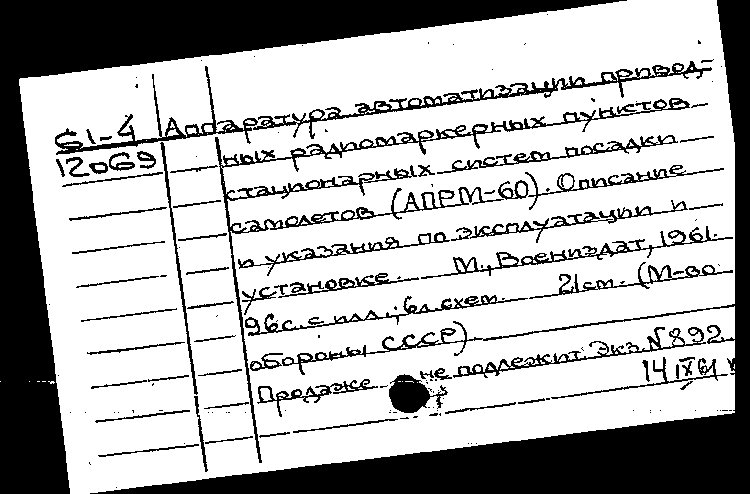 61-4 Аппаратура автоматизации привод-
12069 ных радиомаркерных пунктов
стационарных систем посадки
самолетов (АПРМ-60). Описание
и указания по эксплуатации и
установке. М., Воениздат, 1961.
96с. с илл., 6л. схем. 21см. (М-во
обороны СССР)
Продаже не подлежит. Экз. N 892
14 IX 61